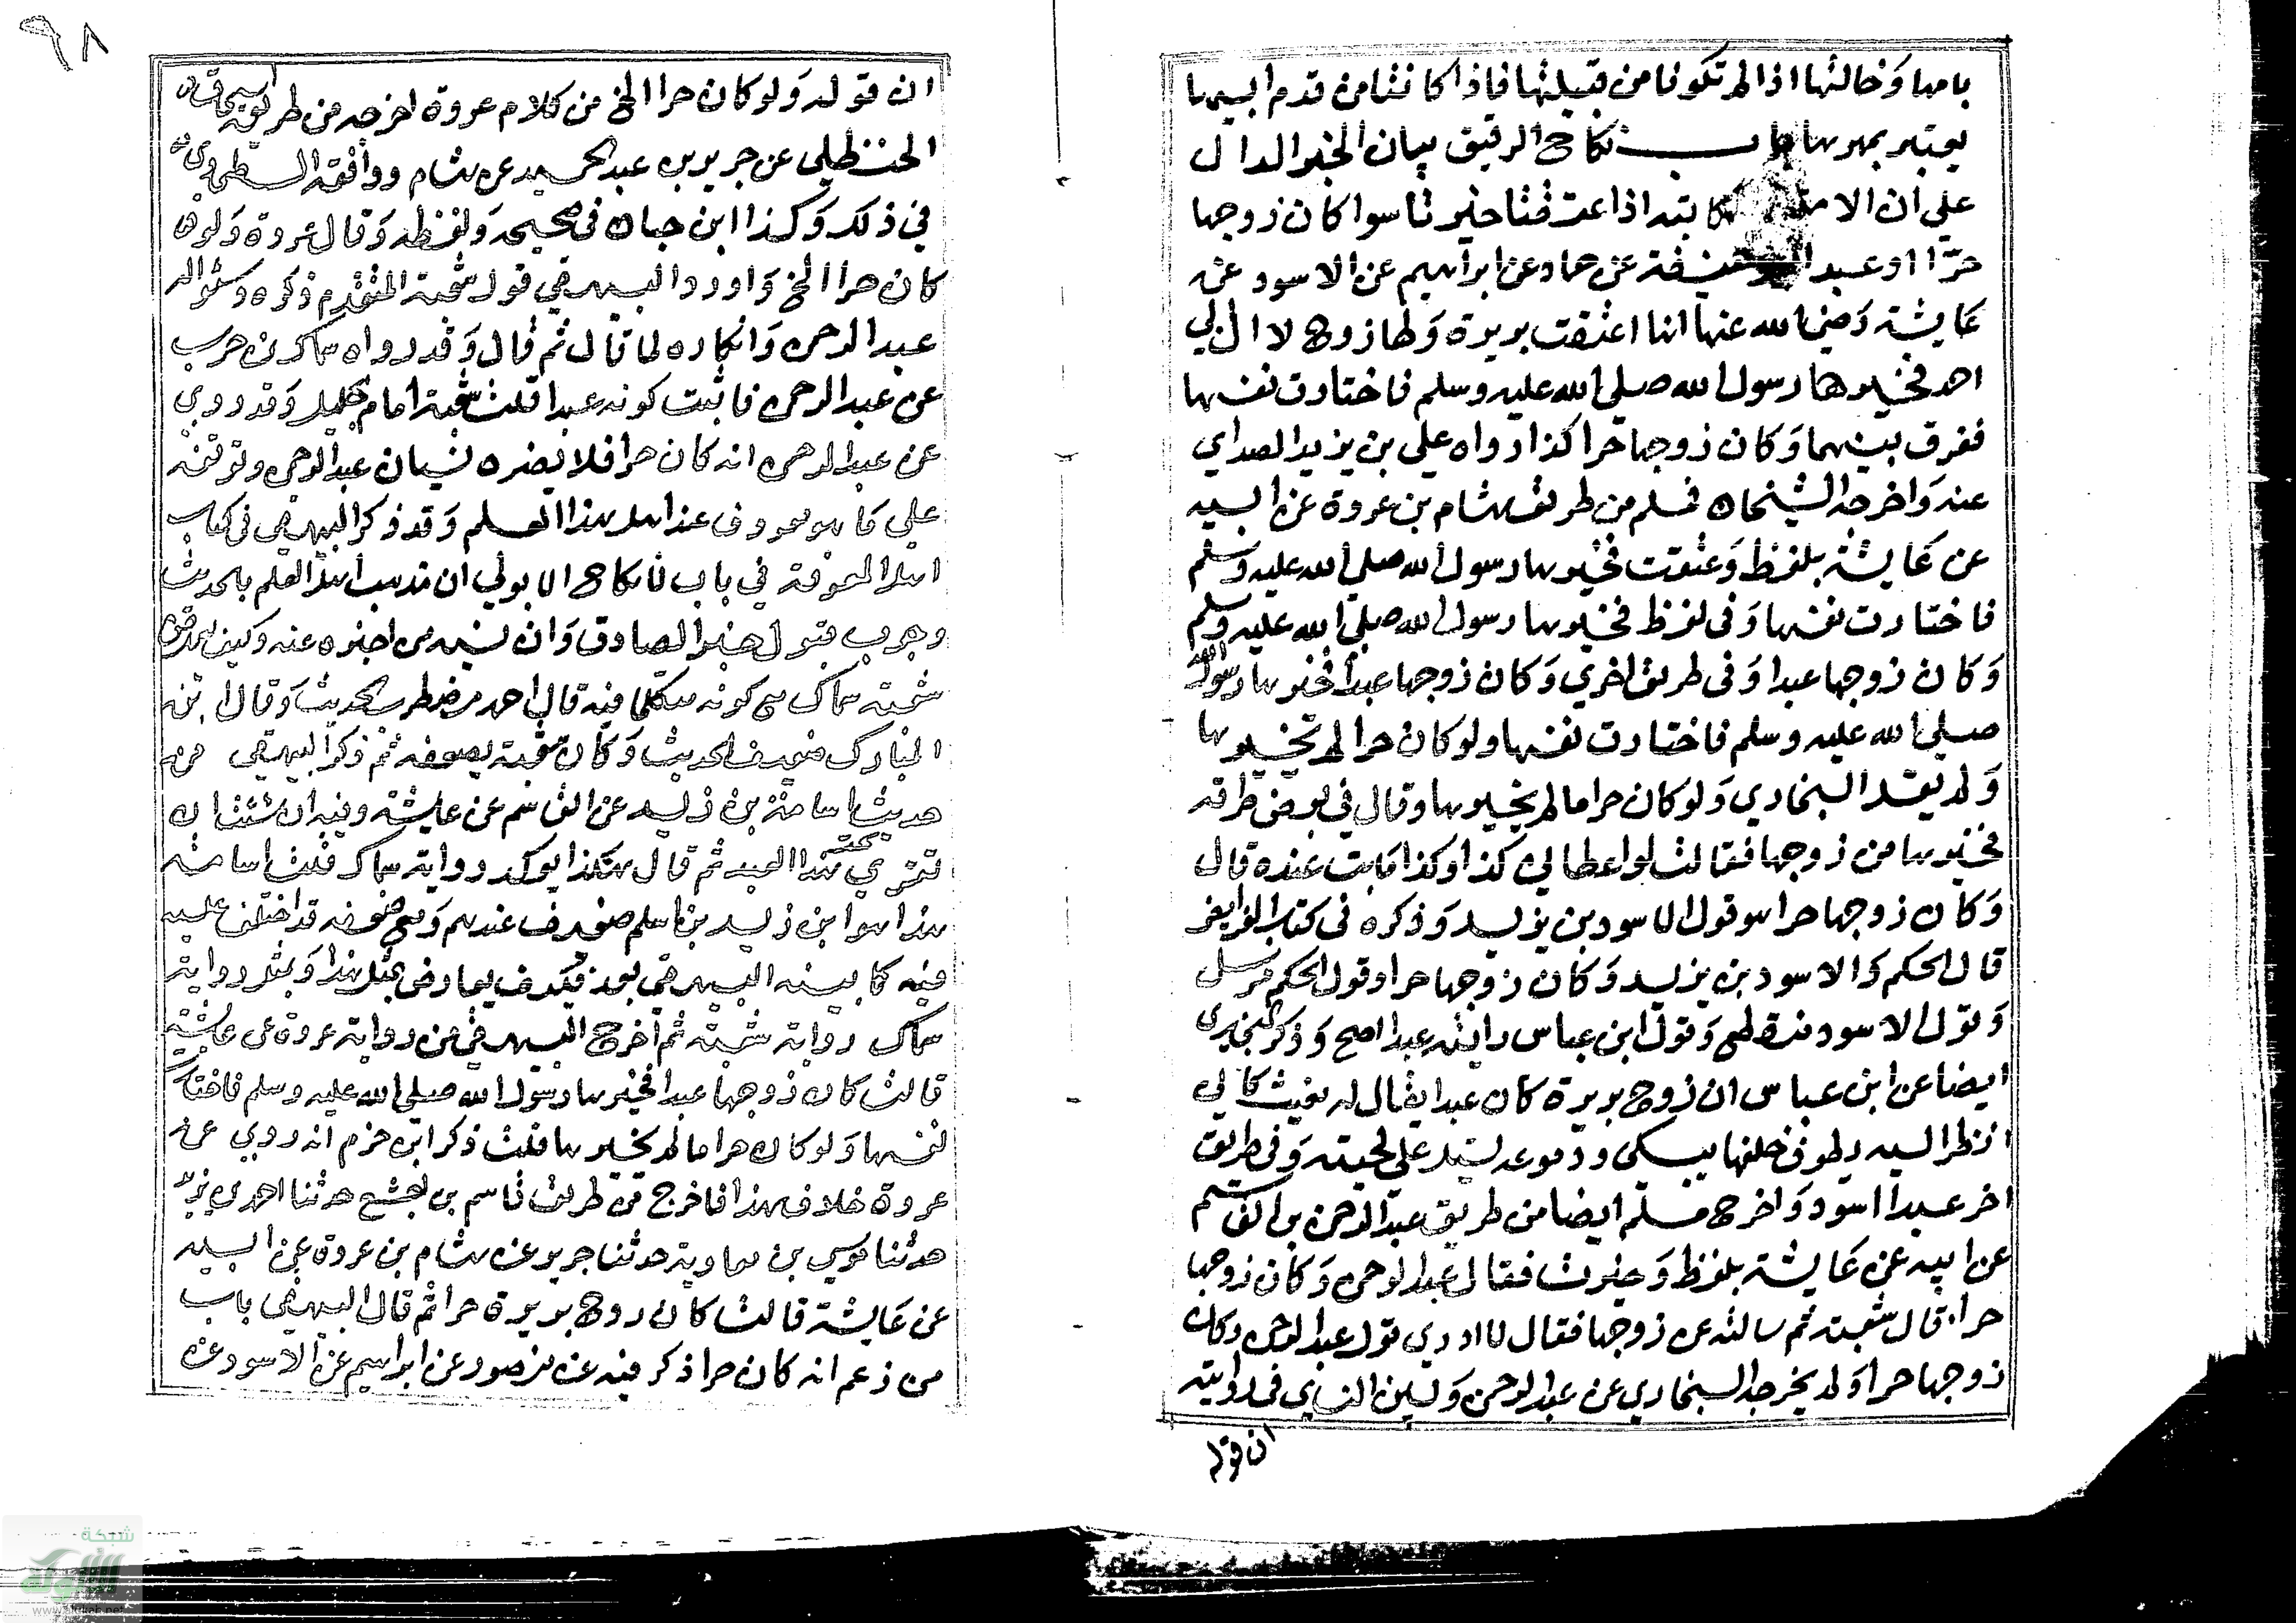 بامها وخالتها اذا لم تكونا من قبيلتها فاذا كانتا من قدم ابيها
يعتبر بمهرها باب نكاح الرقيق بيان الخبر الدال
على ان الامة بته اذا عتقتا خيرتا سوا كان زوجها
حرّا او عبدا عن حماد عن ابراهيم عن الاسود عن
عايشة رضي الله عنها انها اعتقت بريرة ولها زوج لال ابي
احمد فخيرها رسول الله صلى الله عليه وسلم فاختارت نفسها
ففرق بينهما وكان زوجها حرا كذا رواه علي بن يزيد الصداي
عنه واخرجه الشيخان فمسلم من طريق هشام بن عروة عن ابيه
عن عايشة بلفظ وعتقت فخيرها رسول الله صلى الله عليه وسلم
فاختارت نفسها وفي لفظ فخيرها رسول الله صلى الله عليه وسلم
وكان زوجها عبدا وفي طريق اخري وكان زوجها عبدا فخيرها رسول الله
صلى الله عليه وسلم فاختارت نفسها ولو كان حرا لم يخيرها
ولم يقل البخاري ولو كان حرا ما لم يخيرها وقال في بعض طرقه
فخيرها من زوجها فقالت لو اعطاني كذا وكذا ما بت عنده قال
وكان زوجها حرا هو قول الاسود بن يزيد وذكره في كتاب الفرايض
قال الحكم والاسود بن يزيد وكان زوجها حرا وقول الحكم مرسل
وقول الاسود منقطع وقول ابن عباس رايته عبدا اصح وذكر البخاري
ايضا عن ابن عباس ان زوج بريرة كان عبدا يقال له مغيث كاني
انظر اليه يطوف خلفها يبكي ودموعه تسيل على لحيته وفي طريق
اخر عبدا اسود واخرج مسلم ايضا من طريق عبد الرحمن بن القسم
عن ابيه عن عايشة بلفظ وخيرت فقال عبد الرحمن وكان زوجها
حرا قال شعبة ثم سالته عن زوجها فقال لا ادري قول عبد الرحمن وكان
زوجها حرا ولم يخرجه البخاري عن عبد الرحمن وبين النساي في روايته
ان قوله
٩٨
ان قوله ولو كان حرا الخ من كلام عروة اخرجه من طريق اسحاق
الحنظلي عن جرير بن عبد الحميد عن هشام ووافقه الطحاوي
في ذلك وكذا ابن حبان في صحيحه ولفظه وقال عروة ولو
كان حرا الخ واورد البيهقي قول شعبة المتقدم ذكره وسواله
عبد الرحمن وانكاره لما قال ثم قال وقد رواه سماك بن حرب
عن عبد الرحمن فاثبت كونه عبدا قلت شعبة امام جليل وقد روي
عن عبد الرحمن انه كان حرا فلا يضره نسيان عبد الرحمن وتوقفه
على ما هو معروف عند اهل هذا العلم وقد ذكر البيهقي في كتاب
المعرفة في باب لا نكاح الا بولي ان مذهب اهل العلم بالحديث
وجوب قبول خبر الصادق وان نسيه من اخبره عنه وكيف
شعبة سماك مع كونه متكلما فيه قال احمد مضطرب الحديث وقال ابن
المبارك ضعيف الحديث وكان شعبة يضعفه ثم ذكر البيهقي من
حديث اسامة بن زيد عن القاسم عن عايشة وفيه ان شئت ان
تقري تحت هذا العبد ثم قال هكذا يوكد رواية سماك قلت اسامة
هذا هو ابن زيد بن اسلم ضعيف عندهم ومع ضعفه قد اختلف عليه
فيه كما بينه البيهقي بعد فكيف يعارض بمثل هذا وبمثل رواية
سماك رواية شعبة ثم اخرج البيهقي من رواية عروة عن عايشة
قالت كان زوجها عبدا فخيرها رسول الله صلى الله عليه وسلم فاختارت
نفسها ولو كان حرا ما لم يخيرها قلت ذكر ابن حزم انه روي عن
عروة خلاف هذا فاخرج من طريق قاسم بن اصبغ حدثنا احمد بن يزيد
حدثنا موسي بن معاوية حدثنا جرير عن هشام بن عروة عن ابيه
عن عايشة قالت كان زوج بريرة حرا ثم قال البيهقي باب
من زعم انه كان حرا ذكر فيه عن منصور عن ابراهيم عن الاسود عن
شبكة
الألوكة
www.alukah.net